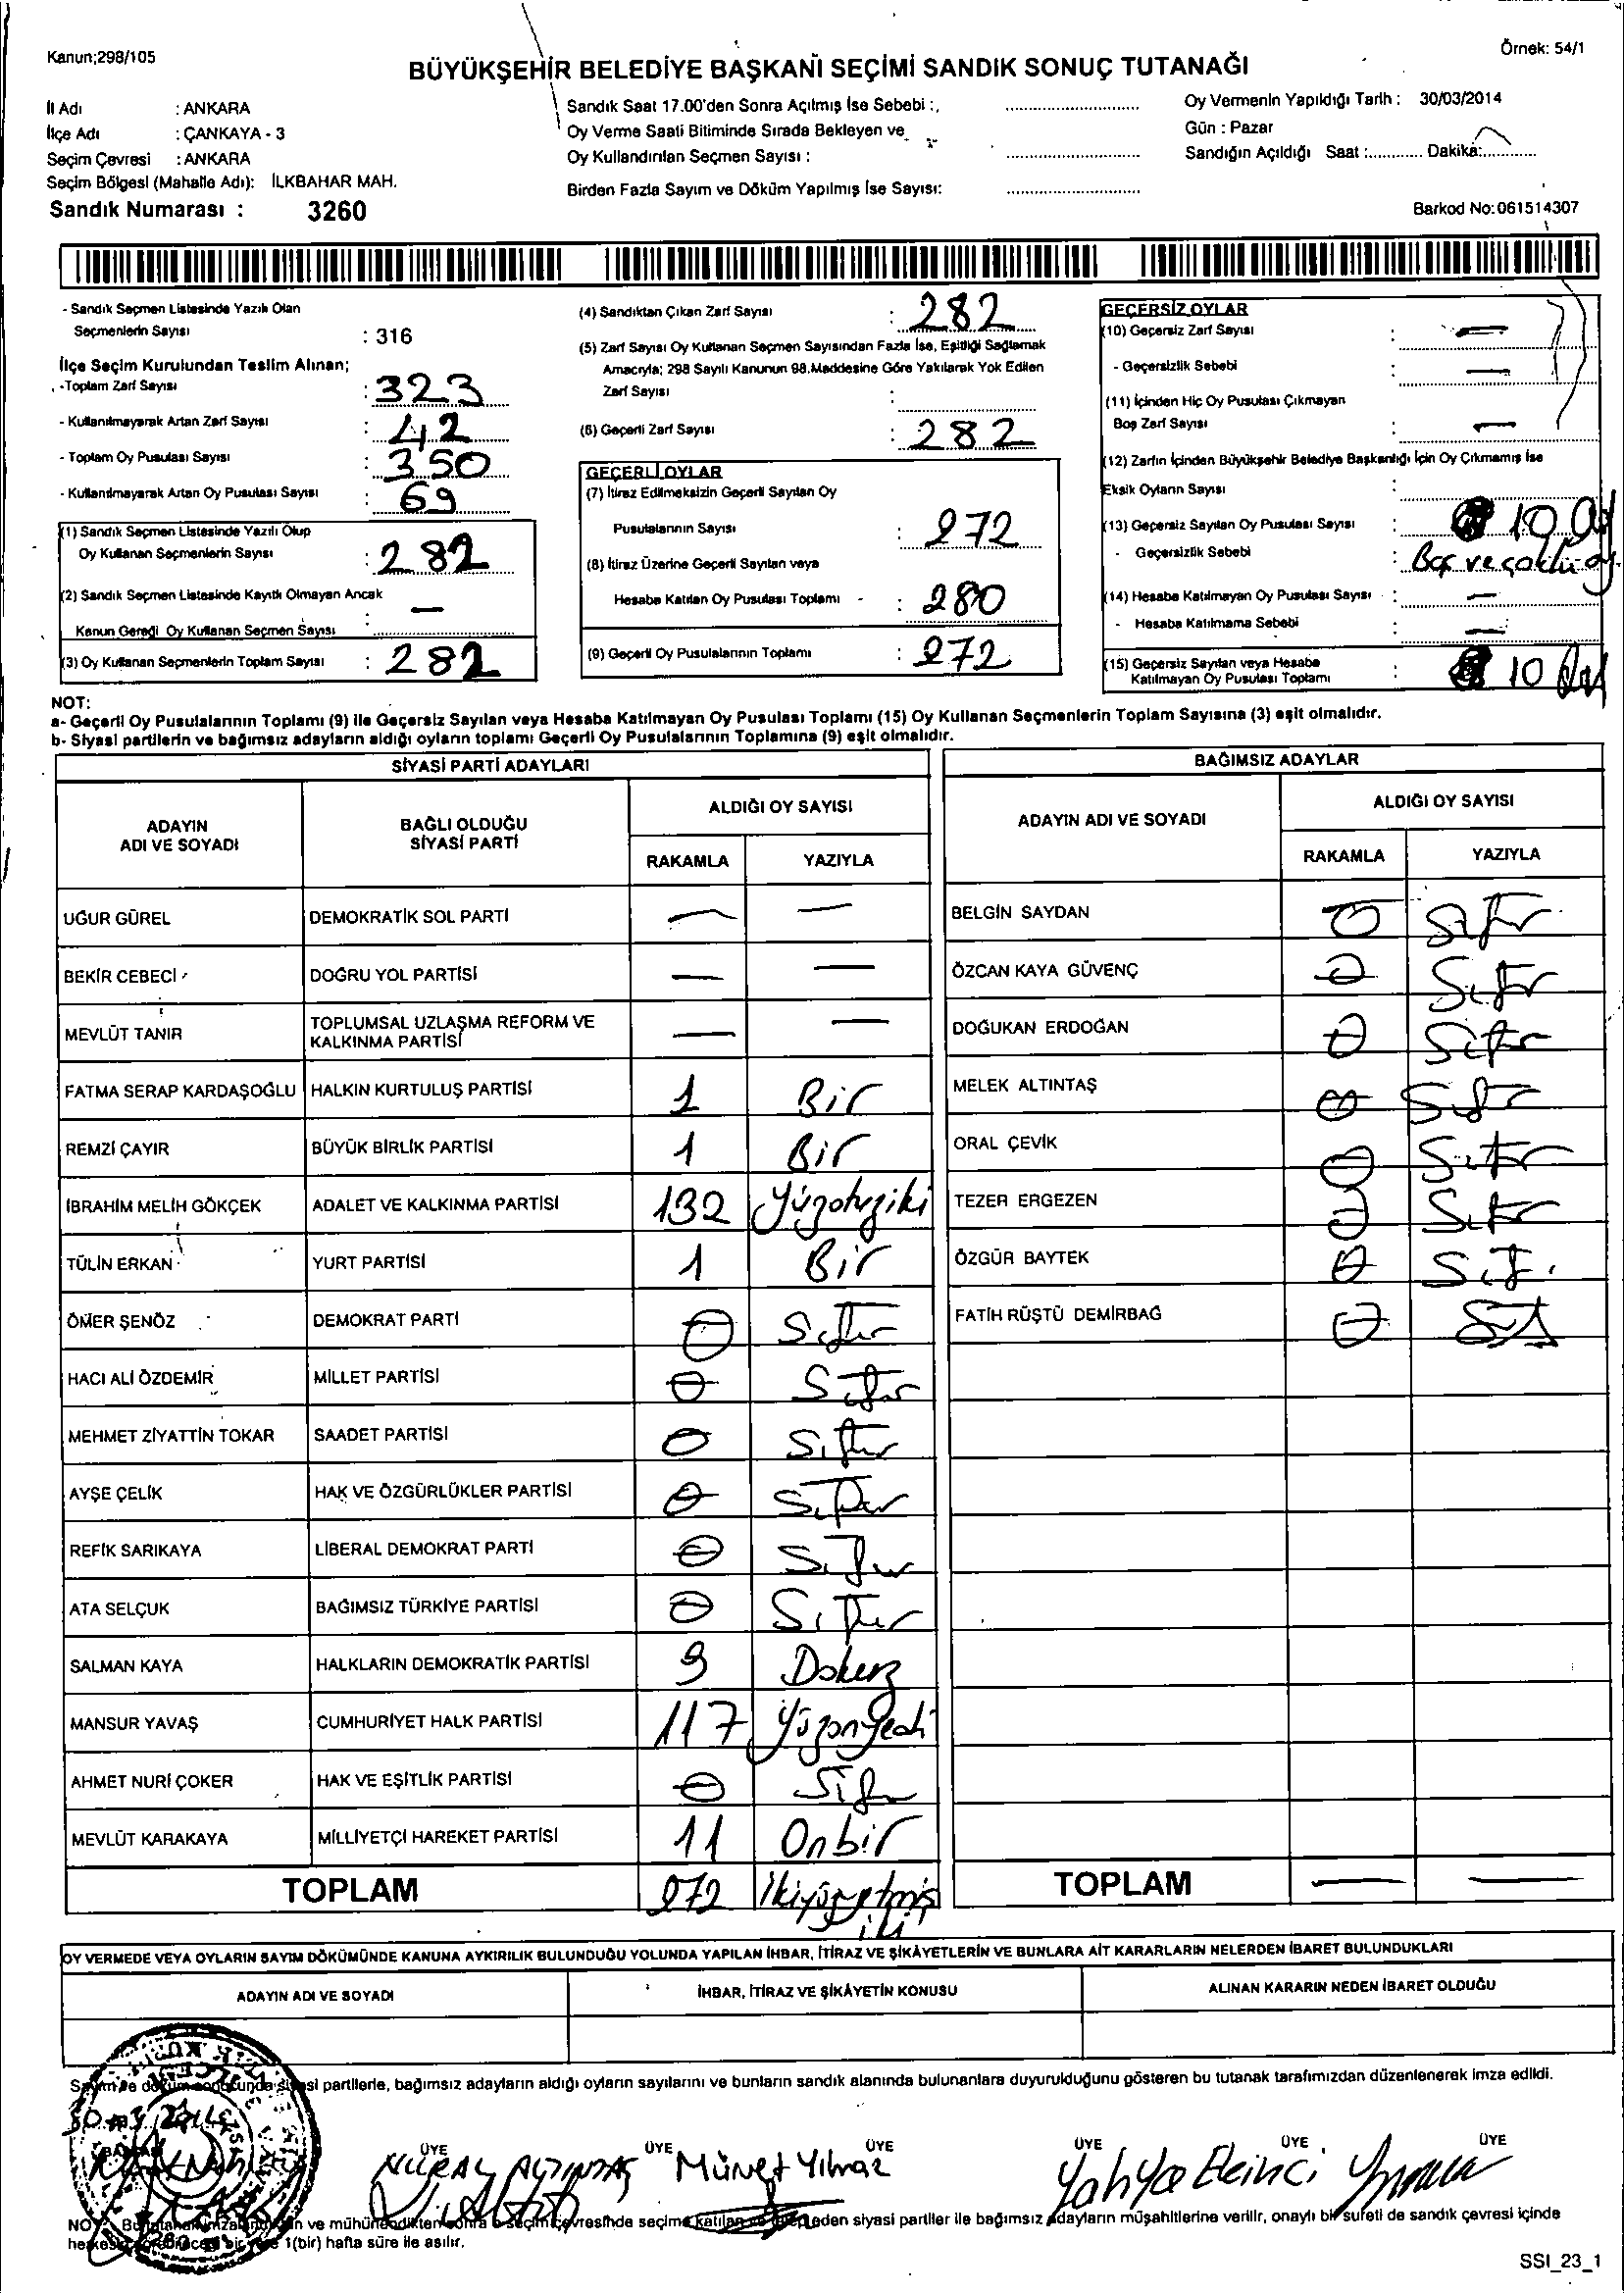 Kanun;298/105
Örnek: 54/1
BÜYÜKŞEHİR BELEDİYE BAŞKANI SEÇİMİ SANDIK SONUÇ TUTANAĞI
İl Adı : ANKARA
İlçe Adı : ÇANKAYA - 3
Seçim Çevresi : ANKARA
Seçim Bölgesi (Mahalle Adı): İLKBAHAR MAH.
Sandık Numarası : 3260
Sandık Saat 17.00'den Sonra Açılmış İse Sebebi :
Oy Verme Saati Bitiminde Sırada Bekleyen ve
Oy Kullandırılan Seçmen Sayısı :
Birden Fazla Sayım ve Döküm Yapılmış İse Sayısı:
Oy Vermenin Yapıldığı Tarih : 30/03/2014
Gün : Pazar
Sandığın Açıldığı Saat :............ Dakika:............
Barkod No:061514307
- Sandık Seçmen Listesinde Yazılı Olan
Seçmenlerin Sayısı : 316
İlçe Seçim Kurulundan Teslim Alınan;
-Toplam Zarf Sayısı : 323
- Kullanılmayarak Artan Zarf Sayısı : 42
- Toplam Oy Pusulası Sayısı : 350
- Kullanılmayarak Artan Oy Pusulası Sayısı : 69
(1) Sandık Seçmen Listesinde Yazılı Olup
Oy Kullanan Seçmenlerin Sayısı : 282
(2) Sandık Seçmen Listesinde Kayıtlı Olmayan Ancak
Kanun Gereği Oy Kullanan Seçmen Sayısı : —
(3) Oy Kullanan Seçmenlerin Toplam Sayısı : 282
(4) Sandıktan Çıkan Zarf Sayısı : 282
(5) Zarf Sayısı Oy Kullanan Seçmen Sayısından Fazla İse, Eşitliği Sağlamak
Amacıyla; 298 Sayılı Kanunun 98.Maddesine Göre Yakılarak Yok Edilen
Zarf Sayısı :
(6) Geçerli Zarf Sayısı : 282
GEÇERLİ OYLAR
(7) İtiraz Edilmeksizin Geçerli Sayılan Oy
Pusulalarının Sayısı : 272
(8) İtiraz Üzerine Geçerli Sayılan veya
Hesaba Katılan Oy Pusulası Toplamı : 280
(9) Geçerli Oy Pusulalarının Toplamı : 272
GEÇERSİZ OYLAR
(10) Geçersiz Zarf Sayısı : —
- Geçersizlik Sebebi : —
(11) İçinden Hiç Oy Pusulası Çıkmayan
Boş Zarf Sayısı : —
(12) Zarfın İçinden Büyükşehir Belediye Başkanlığı İçin Oy Çıkmamış İse
Eksik Oyların Sayısı :
(13) Geçersiz Sayılan Oy Pusulası Sayısı : 10
- Geçersizlik Sebebi : Boş ve çoklu oy
(14) Hesaba Katılmayan Oy Pusulası Sayısı : —
- Hesaba Katılmama Sebebi : —
(15) Geçersiz Sayılan veya Hesaba
Katılmayan Oy Pusulası Toplamı : 10
NOT:
a- Geçerli Oy Pusulalarının Toplamı (9) ile Geçersiz Sayılan veya Hesaba Katılmayan Oy Pusulası Toplamı (15) Oy Kullanan Seçmenlerin Toplam Sayısına (3) eşit olmalıdır.
b- Siyasi partilerin ve bağımsız adayların aldığı oyların toplamı Geçerli Oy Pusulalarının Toplamına (9) eşit olmalıdır.
SİYASİ PARTİ ADAYLARI
ADAYIN ADI VE SOYADI
BAĞLI OLDUĞU SİYASİ PARTİ
ALDIĞI OY SAYISI
RAKAMLA YAZIYLA
UĞUR GÜREL DEMOKRATİK SOL PARTİ — —
BEKİR CEBECİ DOĞRU YOL PARTİSİ — —
MEVLÜT TANIR TOPLUMSAL UZLAŞMA REFORM VE KALKINMA PARTİSİ — —
FATMA SERAP KARDAŞOĞLU HALKIN KURTULUŞ PARTİSİ 1 Bir
REMZİ ÇAYIR BÜYÜK BİRLİK PARTİSİ 1 Bir
İBRAHİM MELİH GÖKÇEK ADALET VE KALKINMA PARTİSİ 132 Yüzotuziki
TÜLİN ERKAN YURT PARTİSİ 1 Bir
ÖMER ŞENÖZ DEMOKRAT PARTİ 0 Sıfır
HACI ALİ ÖZDEMİR MİLLET PARTİSİ 0 Sıfır
MEHMET ZİYATTİN TOKAR SAADET PARTİSİ 0 Sıfır
AYŞE ÇELİK HAK VE ÖZGÜRLÜKLER PARTİSİ 0 Sıfır
REFİK SARIKAYA LİBERAL DEMOKRAT PARTİ 0 Sıfır
ATA SELÇUK BAĞIMSIZ TÜRKİYE PARTİSİ 0 Sıfır
SALMAN KAYA HALKLARIN DEMOKRATİK PARTİSİ 9 Dokuz
MANSUR YAVAŞ CUMHURİYET HALK PARTİSİ 117 Yüzonyedi
AHMET NURİ ÇOKER HAK VE EŞİTLİK PARTİSİ 0 Sıfır
MEVLÜT KARAKAYA MİLLİYETÇİ HAREKET PARTİSİ 11 Onbir
TOPLAM 272 İkiyüzyetmiş iki
BAĞIMSIZ ADAYLAR
ADAYIN ADI VE SOYADI
ALDIĞI OY SAYISI
RAKAMLA YAZIYLA
BELGİN SAYDAN 0 Sıfır
ÖZCAN KAYA GÜVENÇ 0 Sıfır
DOĞUKAN ERDOĞAN 0 Sıfır
MELEK ALTINTAŞ 0 Sıfır
ORAL ÇEVİK 0 Sıfır
TEZER ERGEZEN 0 Sıfır
ÖZGÜR BAYTEK 0 Sıf.
FATİH RÜŞTÜ DEMİRBAĞ 0 Sıf
TOPLAM — —
OY VERMEDE VEYA OYLARIN SAYIM DÖKÜMÜNDE KANUNA AYKIRILIK BULUNDUĞU YOLUNDA YAPILAN İHBAR, İTİRAZ VE ŞİKÂYETLERİN VE BUNLARA AİT KARARLARIN NELERDEN İBARET BULUNDUKLARI
ADAYIN ADI VE SOYADI
İHBAR, İTİRAZ VE ŞİKÂYETİN KONUSU
ALINAN KARARIN NEDEN İBARET OLDUĞU
Sayım ve döküm sonucunda siyasi partilerle, bağımsız adayların aldığı oyların sayılarını ve bunların sandık alanında bulunanlara duyurulduğunu gösteren bu tutanak tarafımızdan düzenlenerek imza edildi.
BAŞKAN ÜYE ÜYE ÜYE ÜYE ÜYE ÜYE
NURAY ALTINTAŞ Yılmaz Yahya Ekinci
seçim çevresinde seçime katılan siyasi partiler ile bağımsız adayların müşahitlerine verilir, onaylı bir sureti de sandık çevresi içinde
1(bir) hafta süre ile asılır.
SSI_23_1